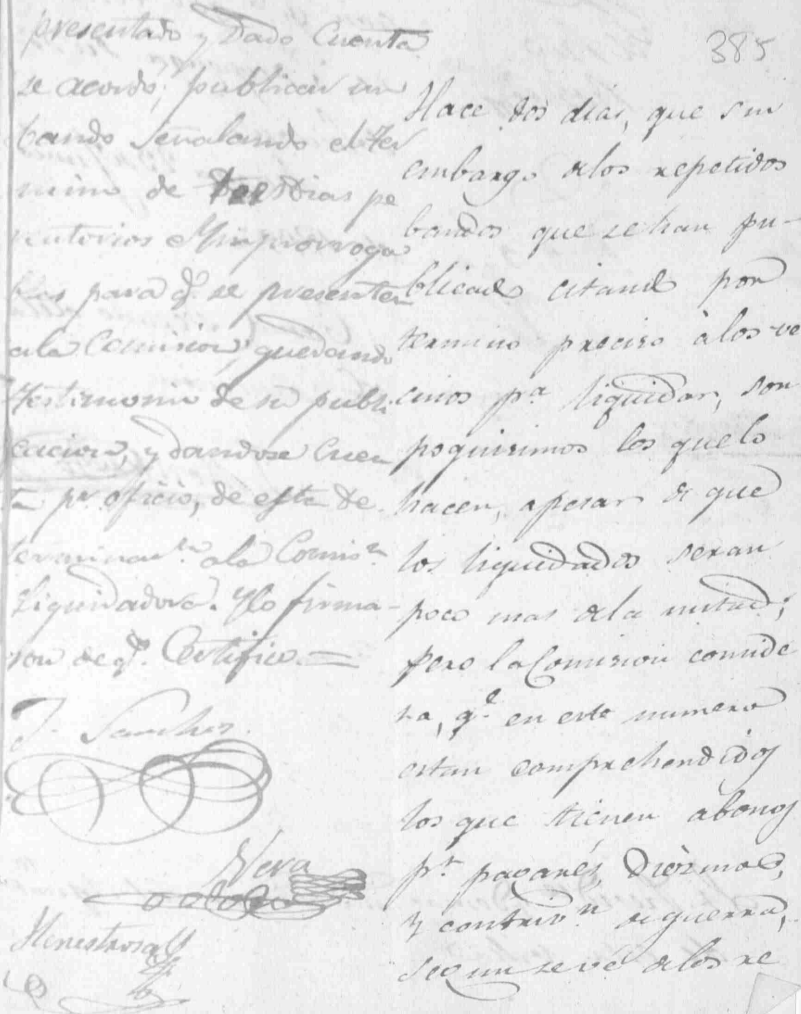 presentado y Dado Cuenta
se acordó, publicar un
bando señalando el ter
mino de tres dias pe
rentorios e Ymprorroga
bles para q.e se presenten
ala Comision, quedando
testimonio de su publi
cacion, y dandose Cuen
ta pr. oficio, de esta de
terminac.on ala Comis.on
Liquidadora. Y lo firma-
ron de q.e Certifico =
J. Sanchez.
Vera
Henestrosa
385
Hace dos dias, que sin
embargo delos repetidos
bandos que se han pu-
blicado citando por
termino preciso à los ve
cinos pa. liquidar, son
poquisimos los quelo
hacen, apesar de que
los liquidados seran
poco mas dela mitad;
pero la Comision conside
ra, q.e en este numero
estan comprehendidos
los que tienen abonos
pr. pagarés, Diézmos,
y contrivon. de guerra,
segun se vé delos re